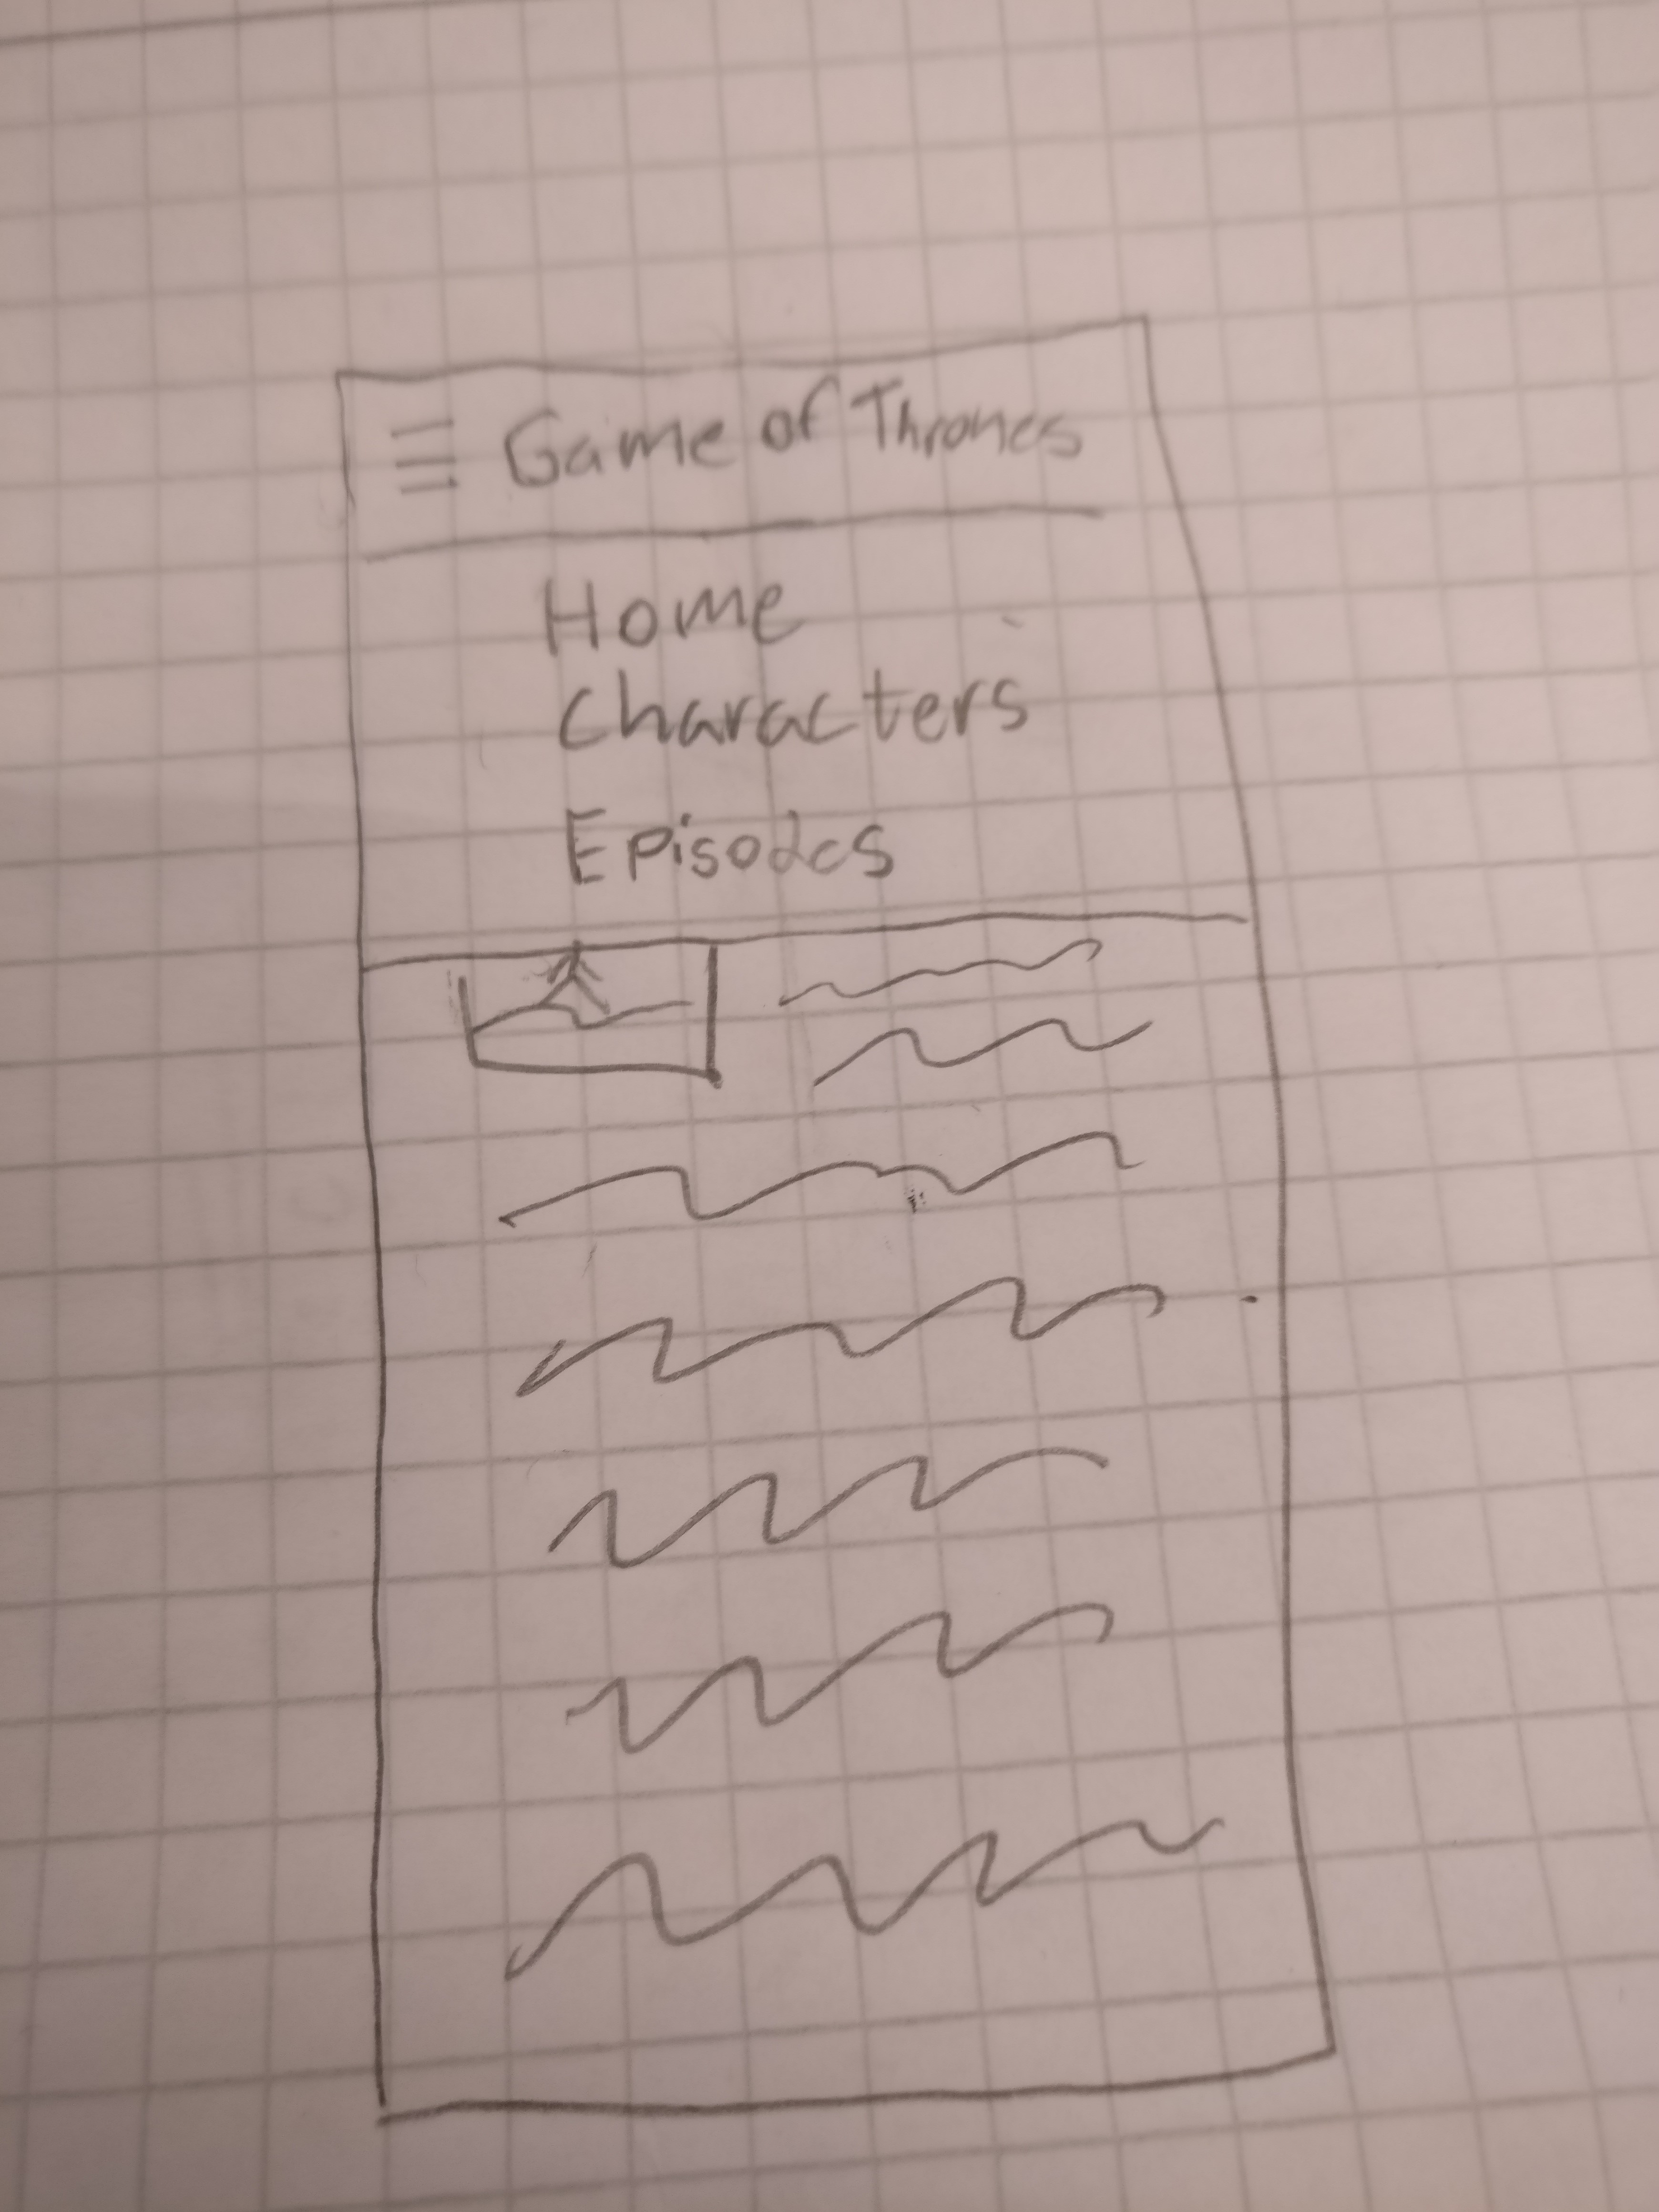 Game of Thrones
Home
Characters
Episodes